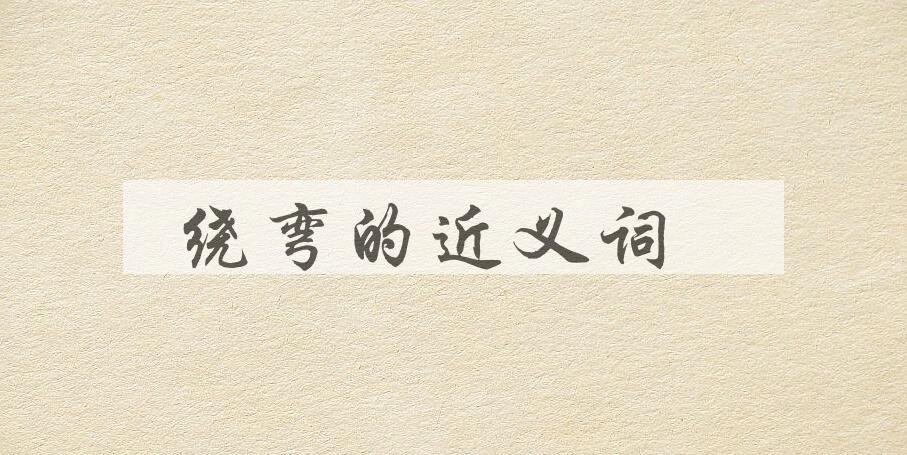 绕弯的近义词